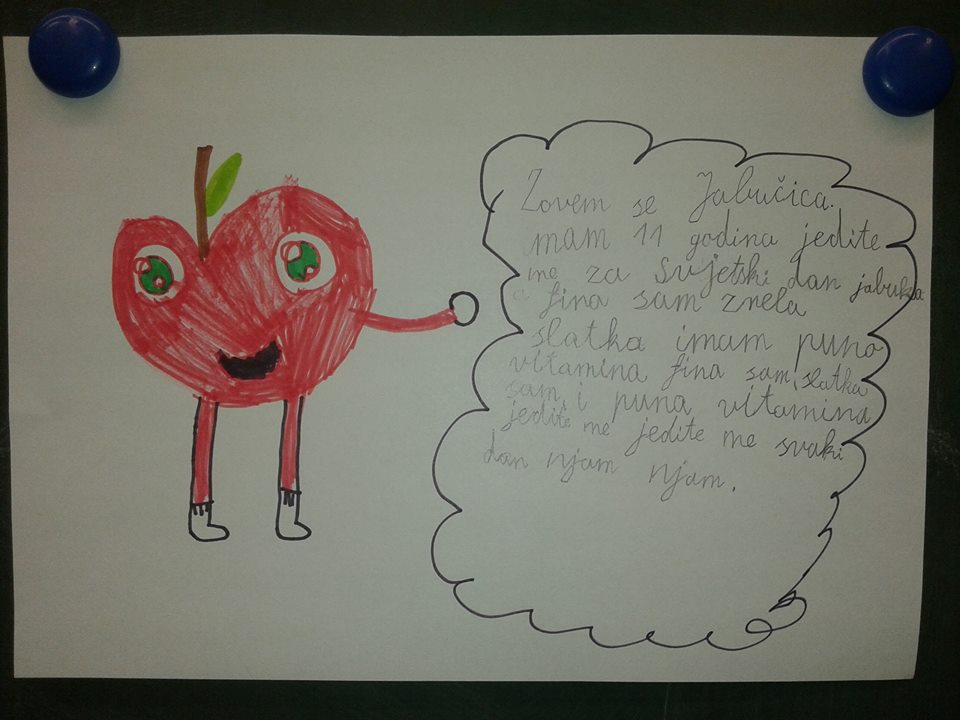 Zovem se Jabučica.
mam 11 godina jedite
me za svjetski dan jabuka
a fina sam znela
slatka imam puno
vitamina fina sam, slatka
sam i puna vitamina
jedite me jedite me svaki
dan njam njam.